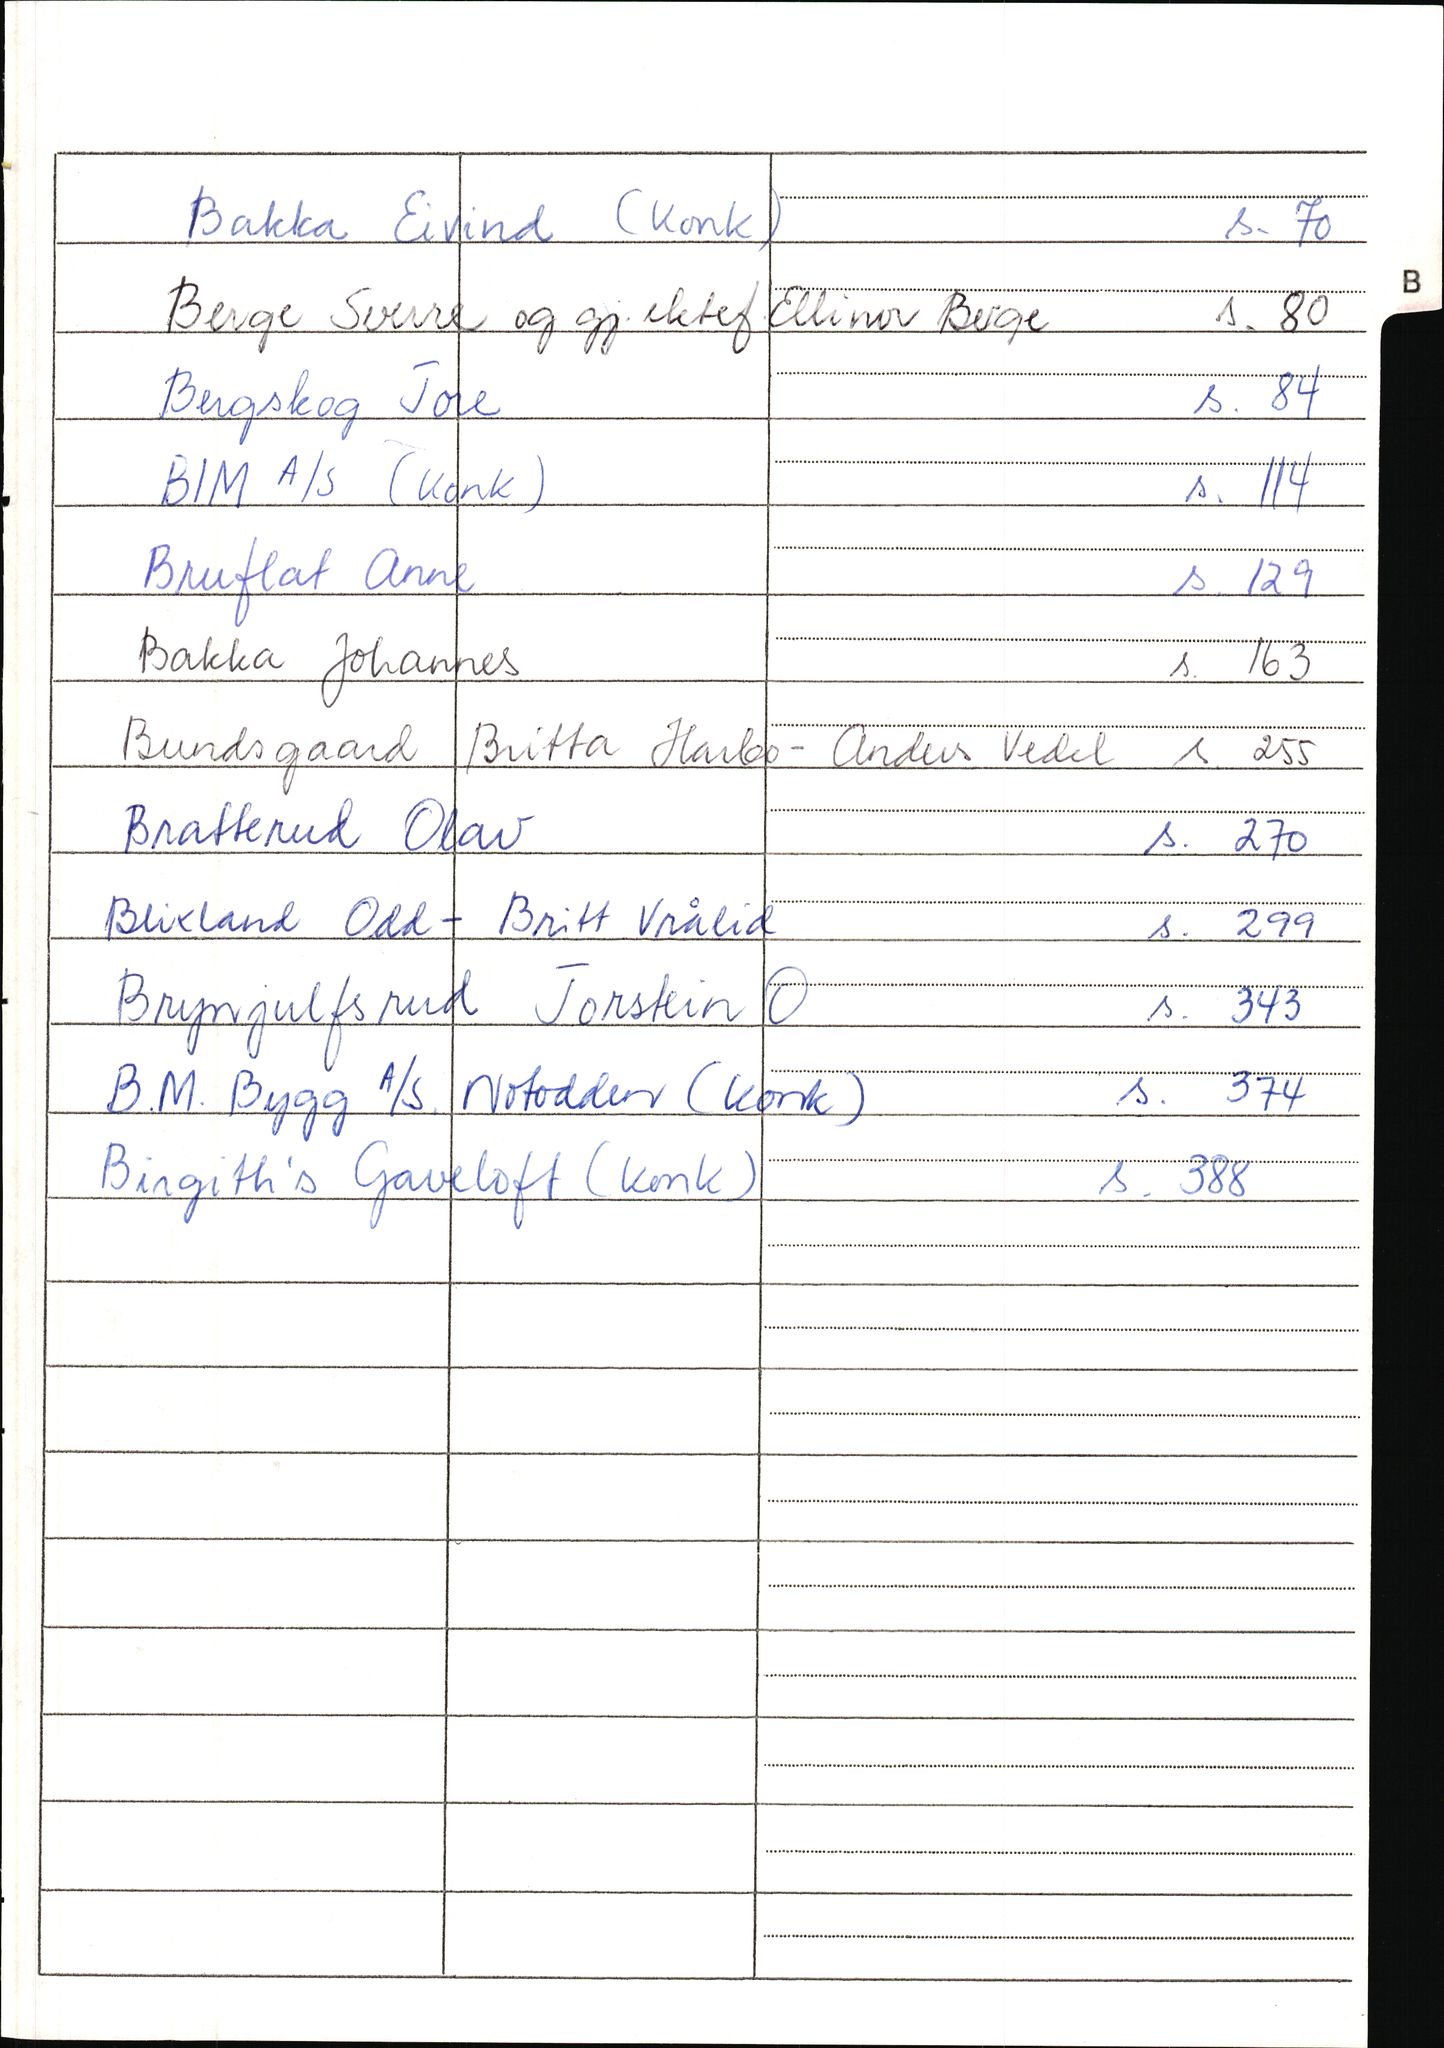 Bakka Eivind (Konk) s. 70
B
Berge Sverre og gj. ektef. Ellinor Berge s. 80
Bergskog Tore s. 84
BIM A/S (Konk) s. 114
Bruflat Anne s. 129
Bakka Johannes s. 163
Bundsgaard Britta Harbo - Anders Vedel s 255
Bratterud Olav s. 270
Blixland Odd - Britt Vrålid s. 299
Brynjulfsrud Torstein O s. 343
B.M. Bygg A/S. Notodden (Konk) s. 374
Birgith's Gaveloft (Konk) s. 388